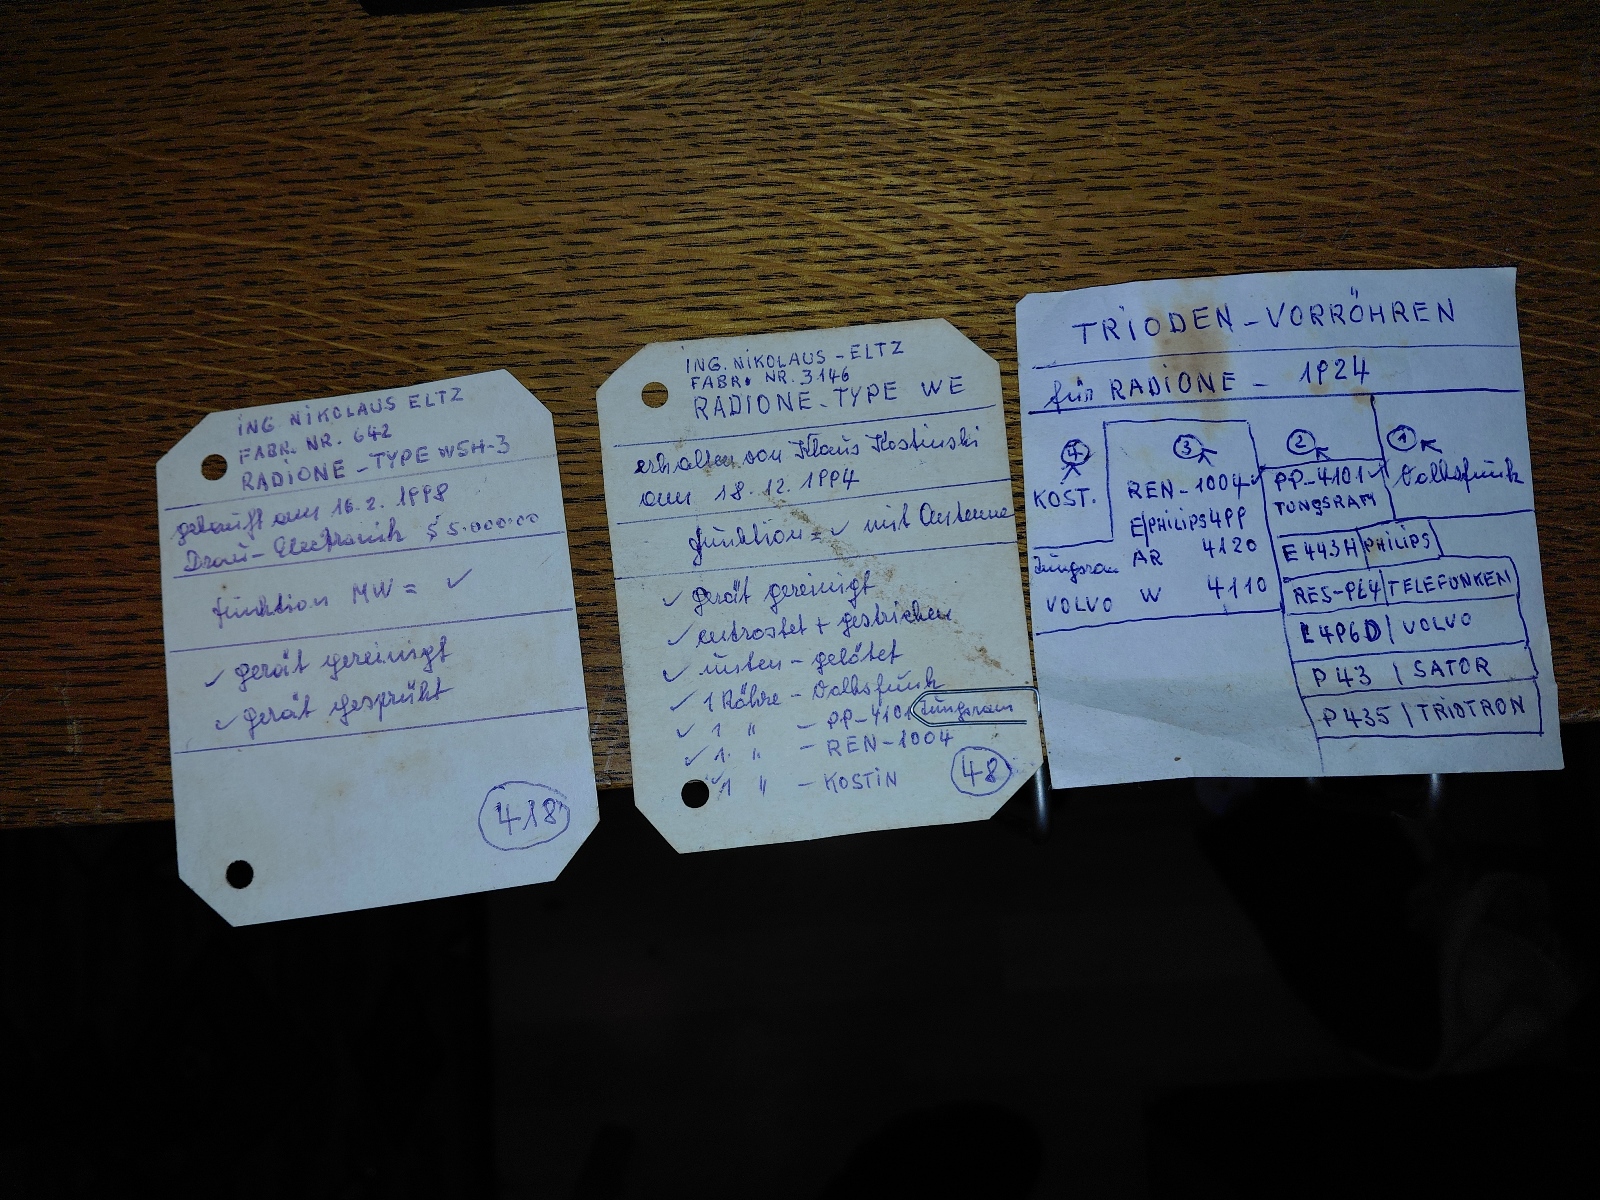 ING NIKOLAUS ELTZ
FABR. NR. 642
RADIONE-TYPE WSH-3
gekauft am 16.2.1998
Drau-Electronik S 5.000.00
funktion MW = ✓
✓ gerät gereinigt
✓ gerät gesprüht
418
ING. NIKOLAUS-ELTZ
FABR. NR. 3146
RADIONE-TYPE WE
erhalten von Klaus Kostinski
am 18.12.1994
funktion = ✓ mit Antenne
✓ gerät gereinigt
✓ entrostet + gestrichen
✓ unten-gelötet
✓ 1 Röhre - Volksfunk
✓ 1 " - PP-4101 Tungsram
✓ 1 " - REN-1004
✓ 1 " - KOSTIN
48
TRIODEN-VORRÖHREN
für RADIONE - 1924
4
KOST.
Tungsram
VOLVO
3
REN-1004 ✓
E/PHILIPS 499
AR 4120
W 4110
2
PP-4101 ✓
TUNGSRAM
1
Volksfunk
E 443H | PHILIPS
RES-964 | TELEFUNKEN
L 496D | VOLVO
P 43 | SATOR
P 435 | TRIOTRON